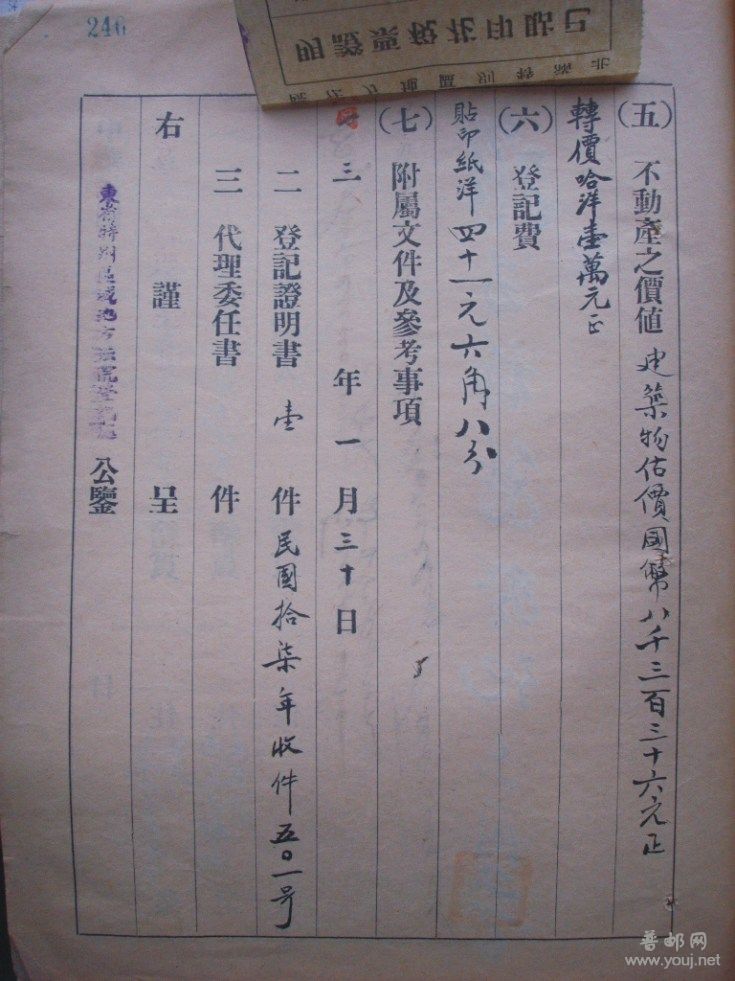 246
(五) 不動產之價值 建築物估價國幣八千三百三十六元正
轉價哈洋壹萬元正
(六) 登記費
貼印紙洋四十一元六角八分
(七) 附屬文件及參考事項
三 年 一 月 三十 日
二 登記證明書 壹 件 民國拾柒年收件五〇一号
三 代理委任書 件
右 謹 呈
東省特別區域地方法院登記處 公鑒
普邮网
www.youj.net